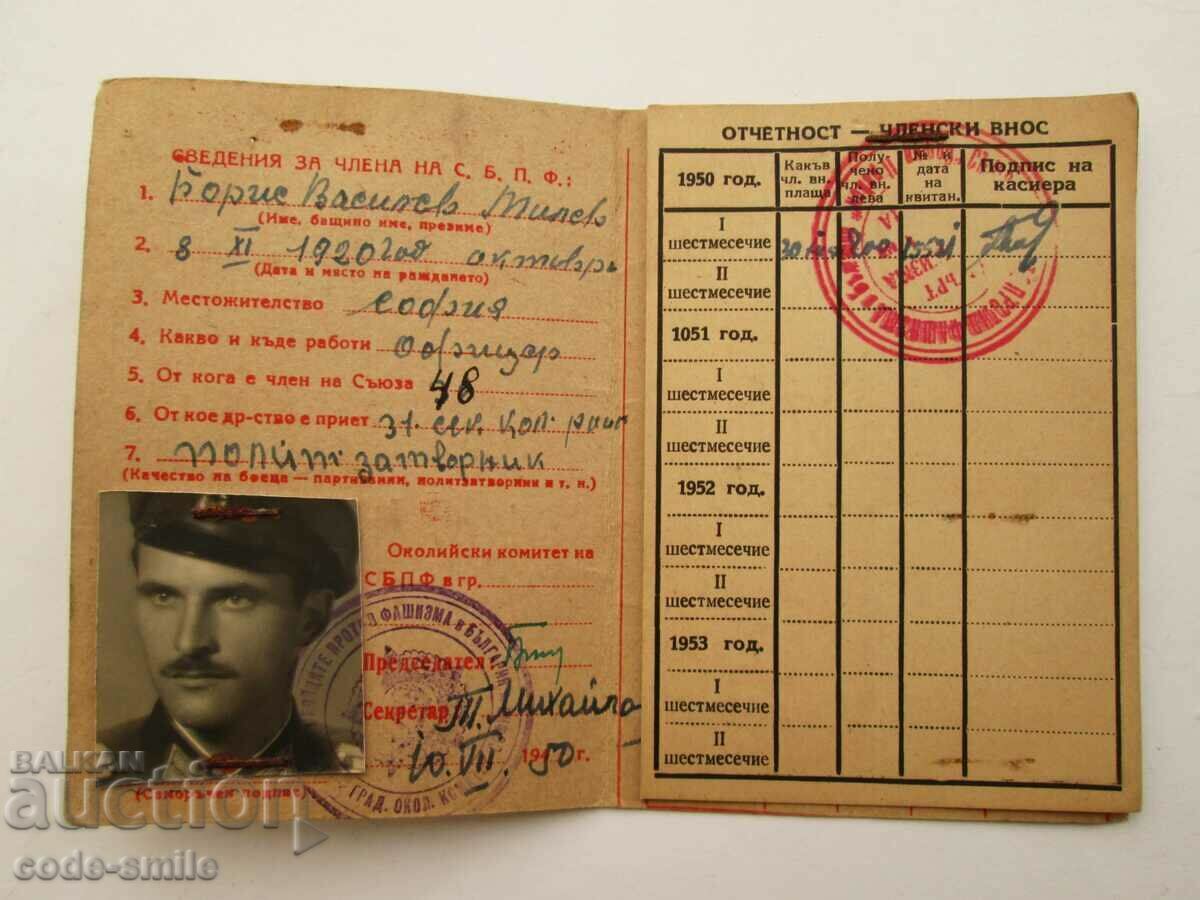 СВЕДЕНИЯ ЗА ЧЛЕНА НА С. Б. П. Ф.:
1. Борис Василев Милев
(Име, бащино име, презиме)
2. 8 XI 1920 год октомври
(Дата и място на раждането)
3. Местожителство София
4. Какво и къде работи Офицер
5. От кога е член на Съюза 48
6. От кое др-ство е приет 31. сек. Кол.
7. полит. затворник
(Качество на бореца — партизанин, политзатворник и т. н.)
Околийски комитет на
СБПФ в гр.
Председател
Секретар Михайло
10. VII. 1950 г.
(Саморъчен подпис)
ПРОТИВ ФАШИЗМА в БЪЛГАРИЯ
ГРАД. ОКОЛ. КО
ОТЧЕТНОСТ — ЧЛЕНСКИ ВНОС
1950 год.
Какъв чл. вн. плаща
Полу-чено чл. вн. лева
№ и дата на квитан.
Подпис на касиера
I шестмесечие 200
II шестмесечие
1051 год.
I шестмесечие
II шестмесечие
1952 год.
I шестмесечие
II шестмесечие
1953 год.
I шестмесечие
II шестмесечие
BALKAN
auction
code-smile